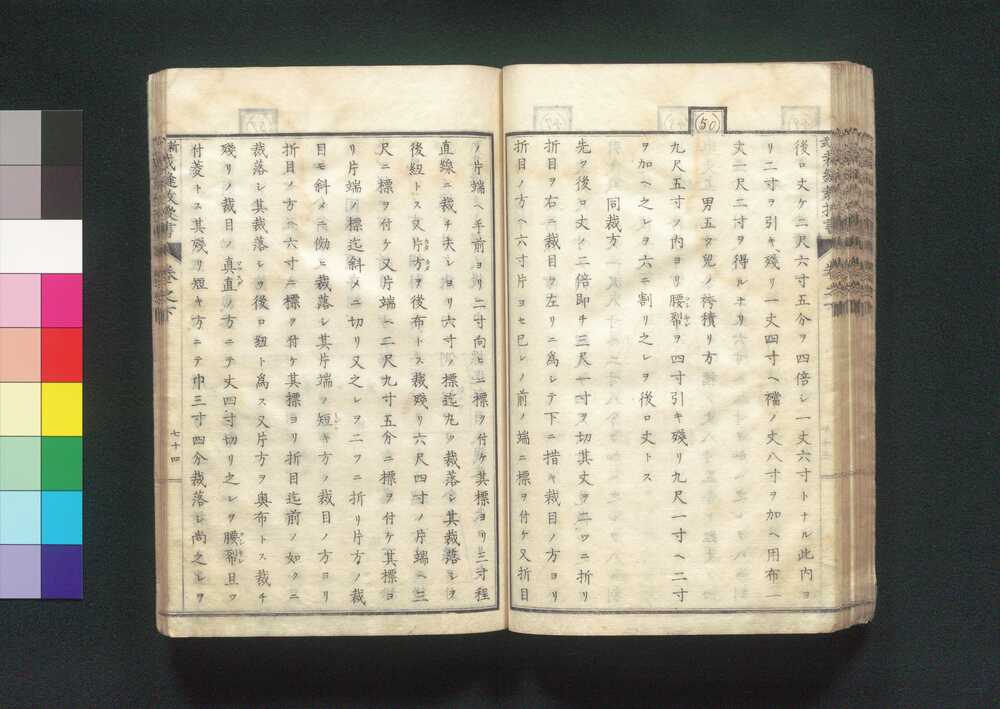 後ロ丈ケ二尺六寸五分ヲ四倍シ一丈六寸トナル此内ヨ
リ二寸ヲ引キ殘リ一丈四寸ヘ襠ノ丈八寸ヲ加ヘ用布一
丈一尺二寸ヲ得ルナリ
50
男五ツ兒ノ袴積リ方
九尺五寸ノ内ヨリ腰䋆ヲ四寸引キ殘リ九尺一寸ヘ二寸
ヲ加ヘ之レヲ六ニ割リ之レヲ後ロ丈トス
同裁方
先ヅ後ロ丈ノ二倍即チ三尺一寸ヲ切其丈ヲ二ツニ折リ
折目ヲ右ニ裁目ヲ左リニ爲シテ下ニ措キ裁目ノ方ヨリ
折目ノ方ヘ六寸片ヨセ巳レノ前ノ端ニ標ヲ付ケ又折目
ノ片端ヘ手前ヨリ二寸向ヒニ標ヲ付ケ其標ヨリ三寸程
直線ニ裁チ夫レヨリ六寸ノ標迄丸ク裁落シ其裁落シヲ
後紐トス又片方ヲ後布トス裁殘リ六尺四寸ノ片端ヘ三
尺ニ標ヲ付ケ又片端ヘ二尺九寸五分ニ標ヲ付ケ其標ヨ
リ片端ノ標迄斜メニ切リ又之レヲ二ツニ折リ片方ノ裁
目モ斜メニ拗ヒ裁落シ其片端ノ短キ方ノ裁目ノ方ヨリ
折目ノ方ヘ六寸ニ標ヲ付ケ其標ヨリ折目迄前ノ如クニ
裁落シ其裁落シヲ後ロ紐ト爲ス又片方ヲ奥布トス裁チ
殘リノ裁目ノ眞直ノ方ニテ丈四寸切リ之レヲ腰䋆且ツ
付菱トス其殘リ短キ方ニテ巾三寸四分裁落シ尚之レヲ
新裁縫教授書
卷之下
七十四